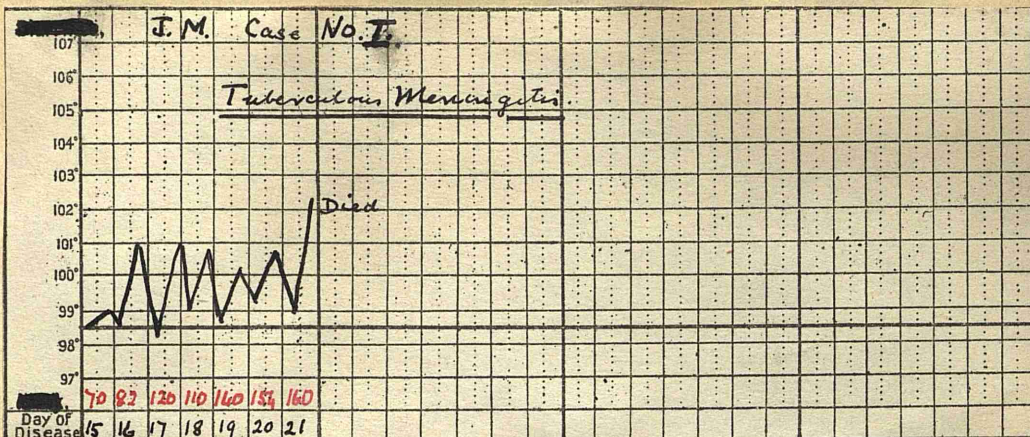 J. M. Case No. I.
Tuberculous Meningitis.
107°
106°
105°
104°
103°
102° Died
101°
100°
99°
98°
97°
70 82 120 110 140 154 160
Day of
Disease 15 16 17 18 19 20 21